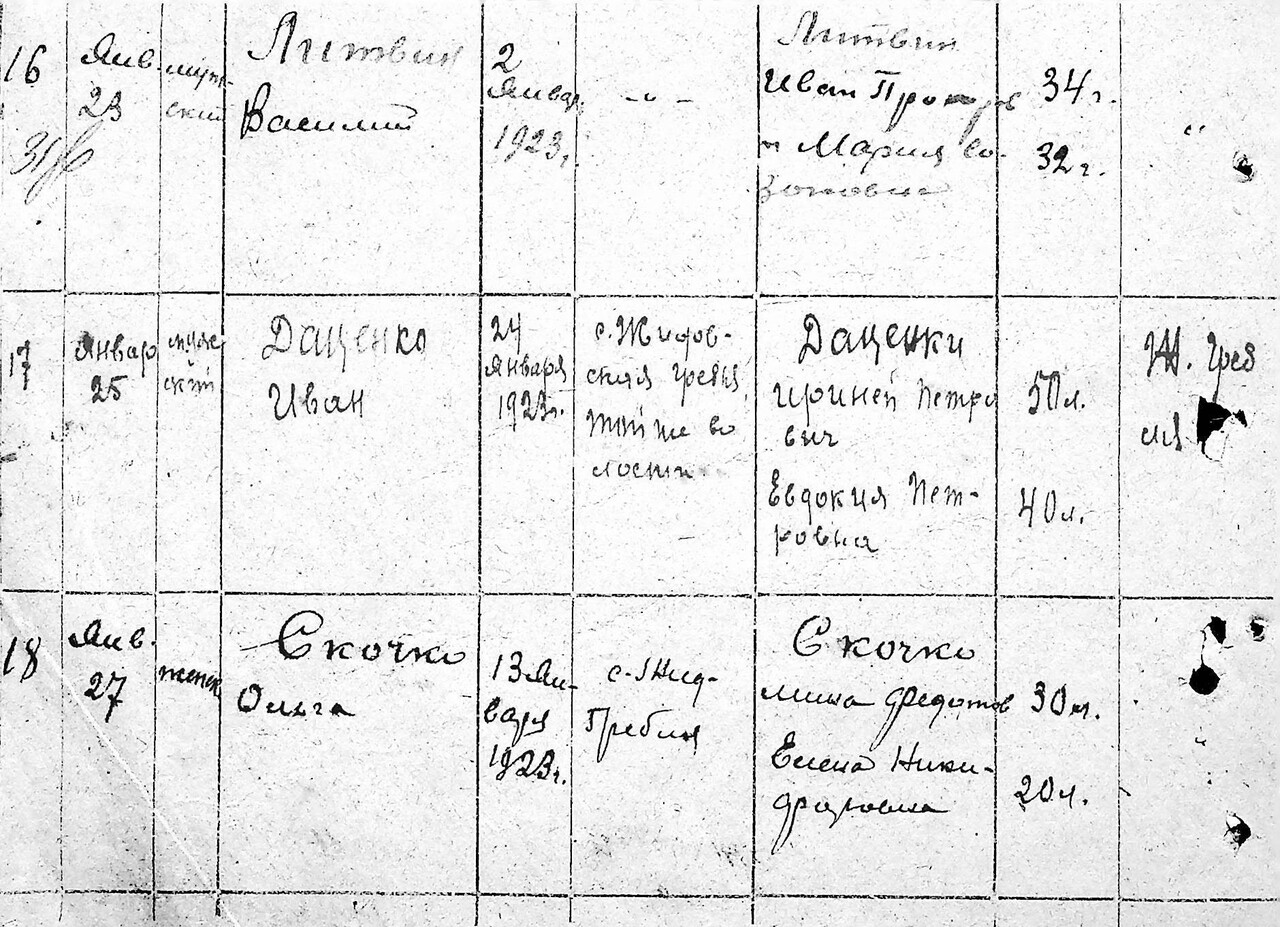 16
Янв.
23
муж-
ский
Литвин
Василий
2
Январ
1923г.
- " -
Литвин
Иван Прокоров
и Мария Со-
зоновна
34 г.
32 г.
"
17
Январ
25
муж
ский
Даценко
Иван
24
Января
1923г.
с. Жидов-
ская Гребля
той же во
лости
Даценки
Ириней Петро
вич
Евдокия Пет-
ровна
50 л.
40 л.
Ж. Греб
ля
18
Янв.
27
женск
Скочко
Ольга
13 Ян-
варя
1923г.
с. Жид-
Гребля
Скочко
Миша Федотов
Елена Ники-
фровна
30 л.
20 л.
"